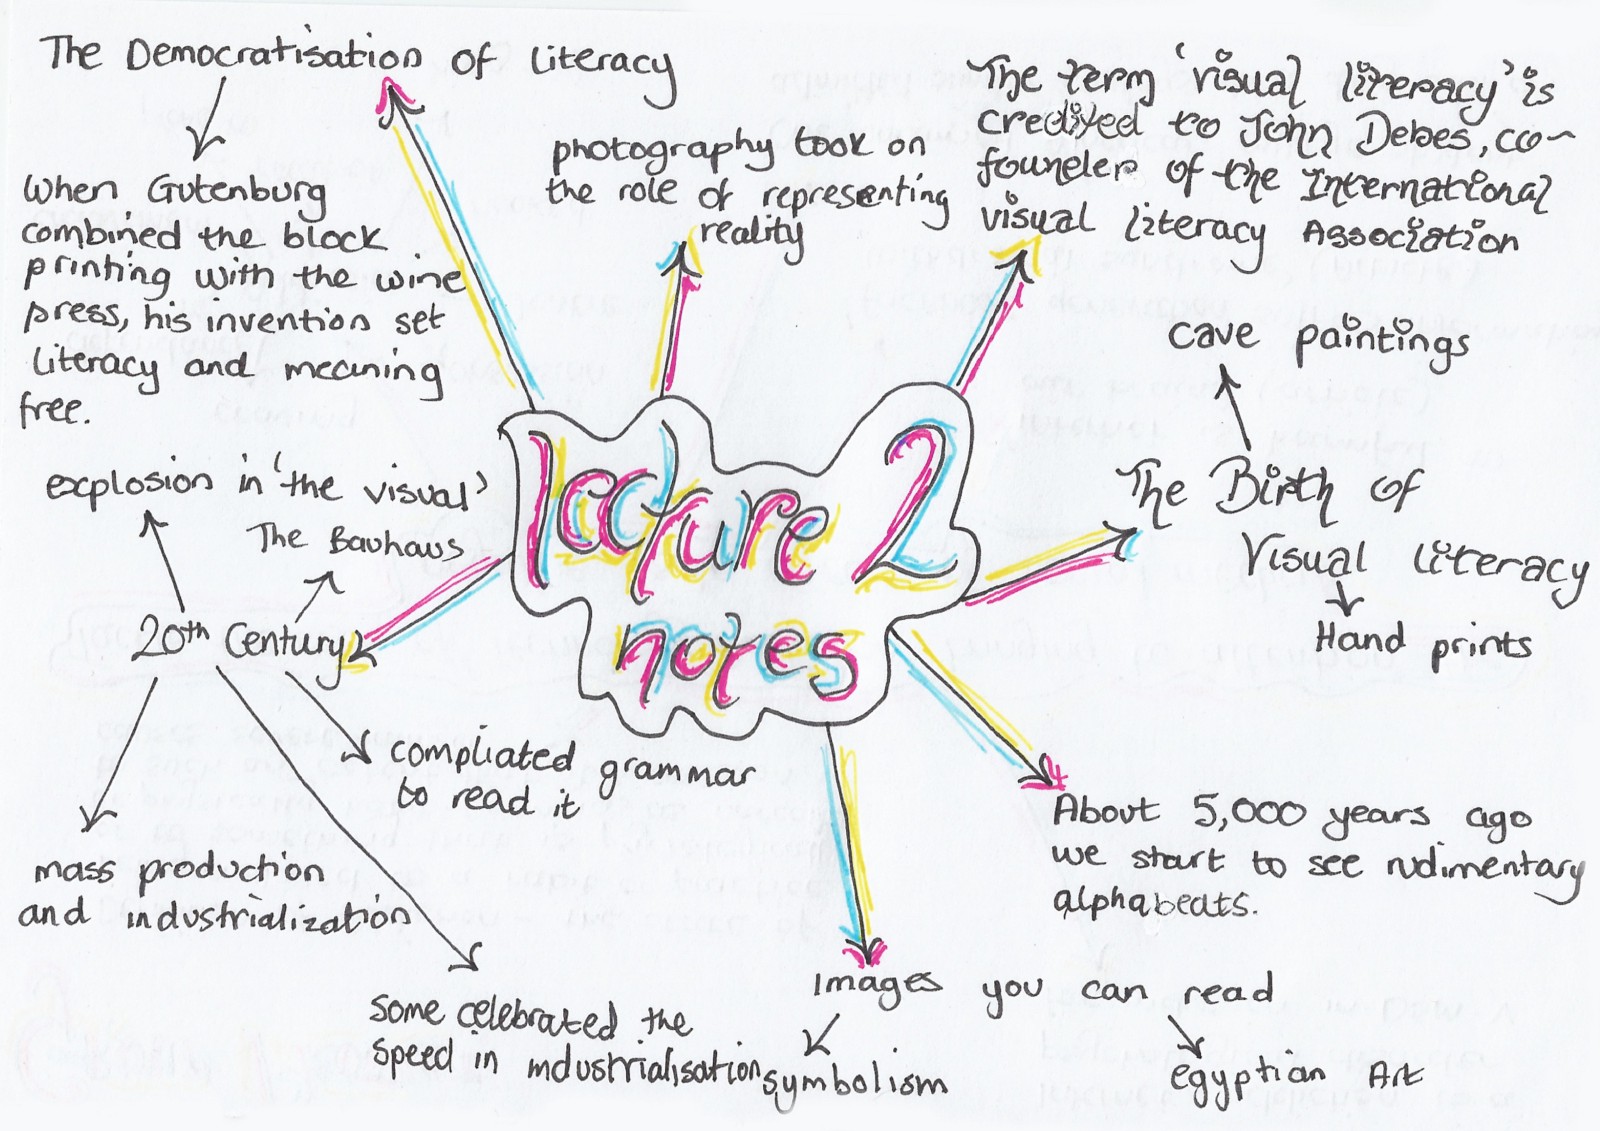 The Democratisation of literacy
When Gutenburg
combined the block
printing with the wine
press, his invention set
literacy and meaning
free.
photography took on
the role of representing
reality
The term 'visual literacy' is
credited to John Debes, co-
founder of the International
visual literacy Association
cave paintings
The Birth of
Visual literacy
Hand prints
lecture 2
notes
explosion in 'the visual'
The Bauhaus
20th Century
compliated grammar
to read it
mass production
and industrialization
some celebrated the
speed in industrialisation
About 5,000 years ago
we start to see rudimentary
alphabeats.
Images you can read
symbolism
egyptian Art